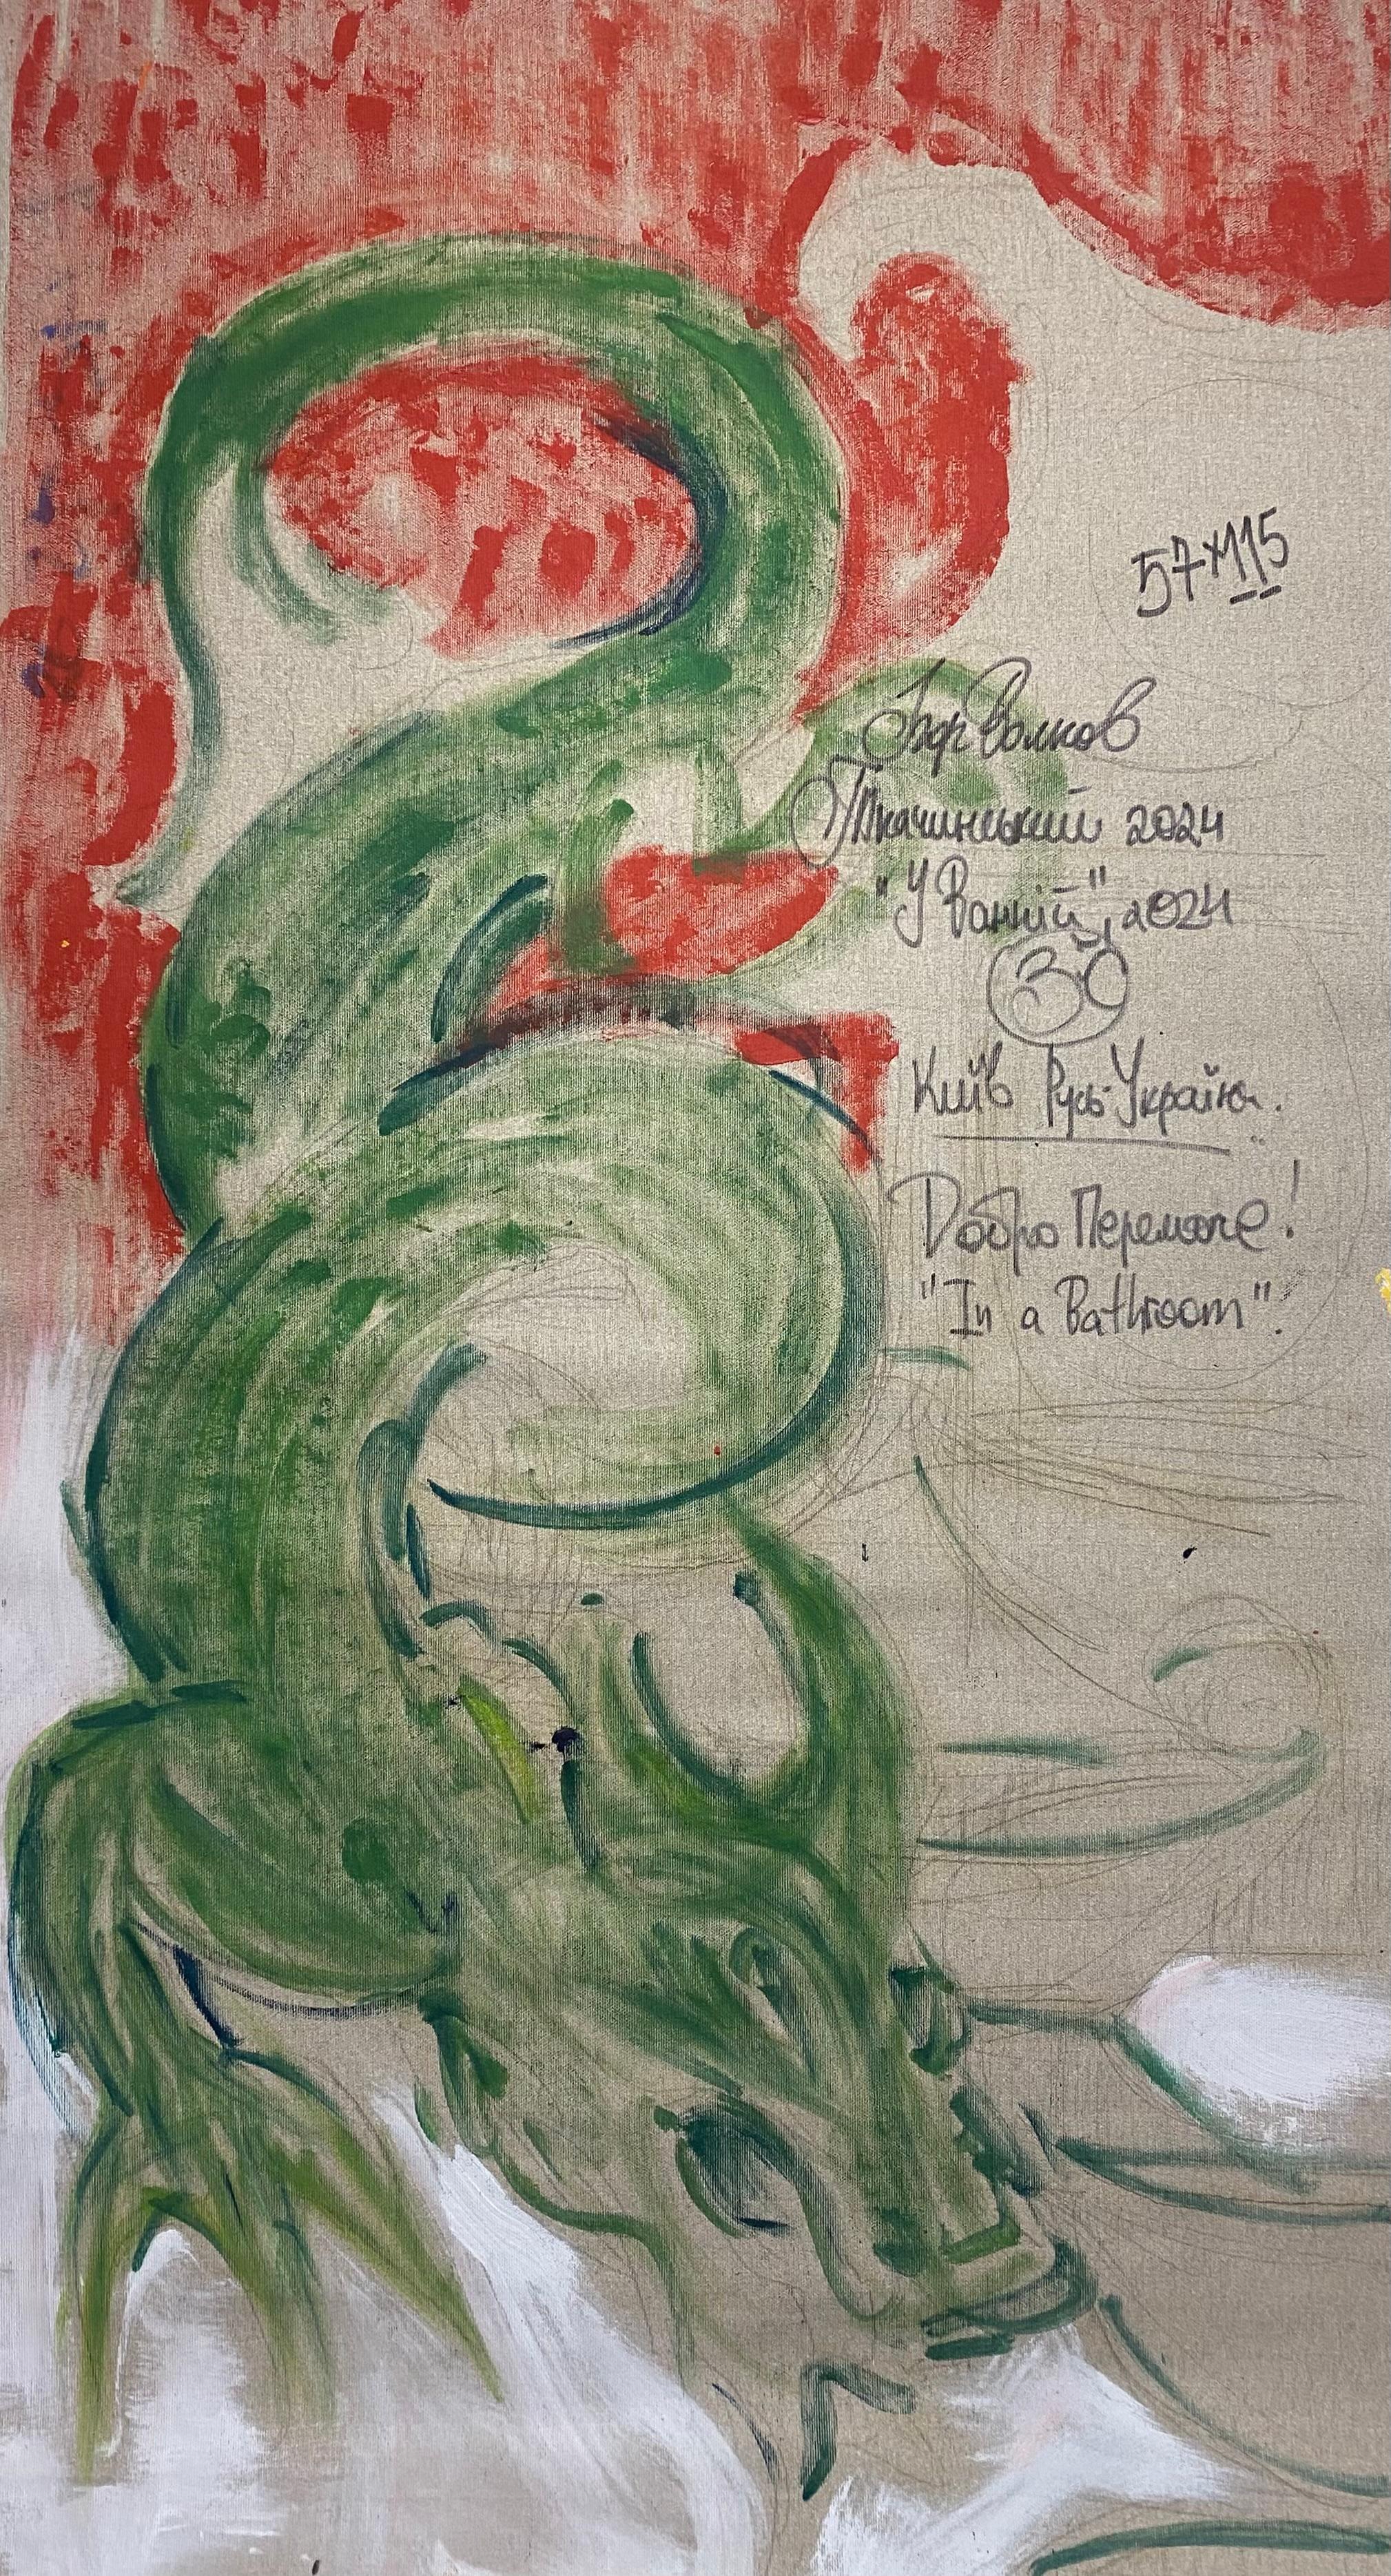 57×115
Ігор Волков
Ткачинський 2024
"У Ванній", 2024
30
Київ Русь-Україна.
Добро Переможе!
"In a Bathroom".